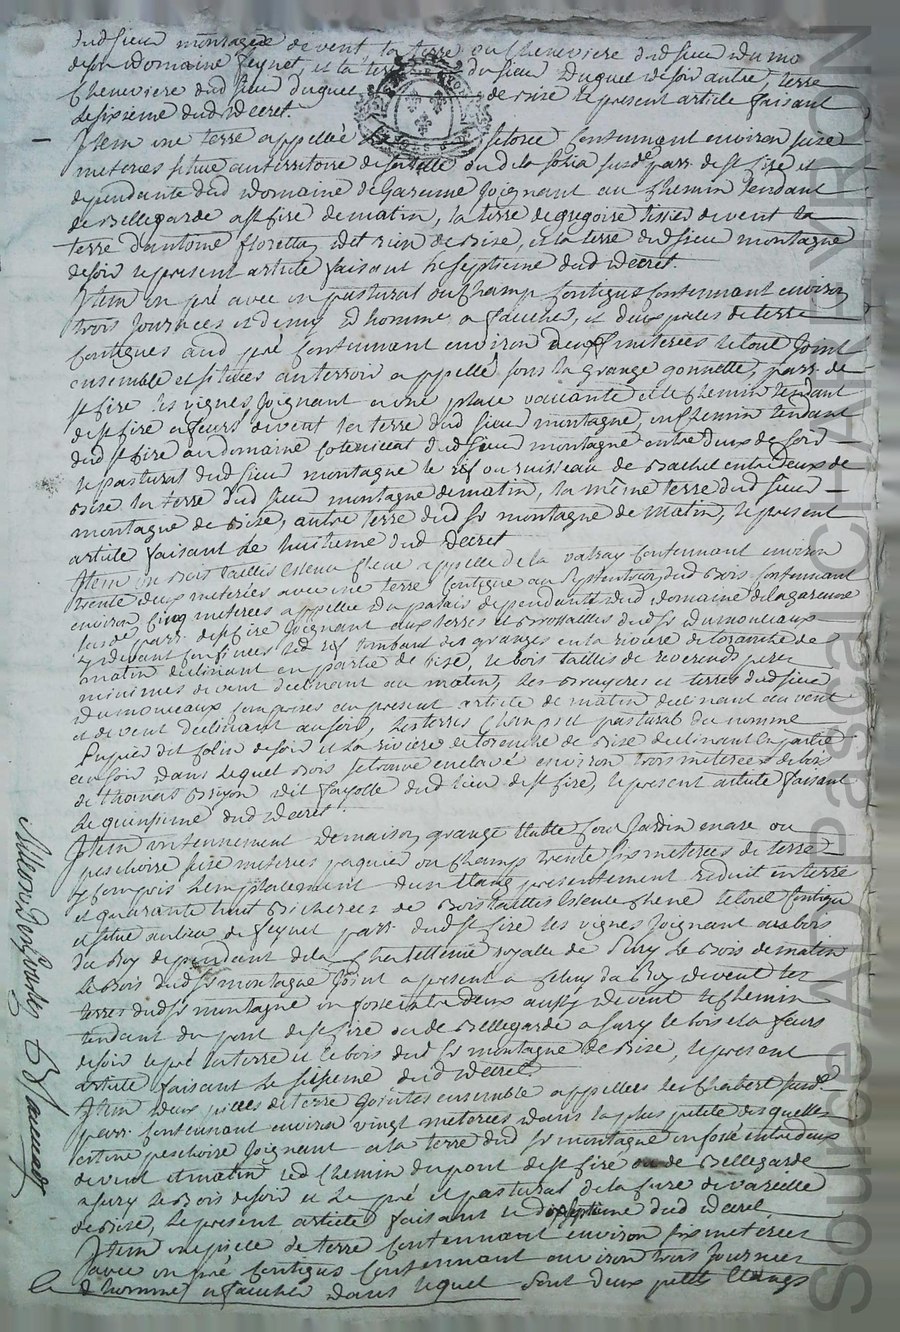 dud sieur montagne de vent la terre ou cheneviere dud sieur Dumo
de son Domaine feynet, et la terre du sieur Duguet de soir autre terre
Cheneviere dud sieur duguet de bise le present article faisant
le sixieme dud Decret.
Item une terre appellée sitouee Contennant environ seize
meterées situé au territoire de ou de la susd. parr. de st fire et
dependante dud Domaine de Garenne Joignant au Chemin tendant
de Bellegarde a st fire de matin, la terre de gregoire tissier de vent la
terre d'antoine floretta dit rien de Bise, et la terre dud sieur montagne
de soir le present article faisant le septieme dud Decret.
Item un pré avec un pastural ou Champ Contigus Contennant environ
trois Journées et demy d'homme a faucher, et deux pieces de terre
Contigues aud pré Contennant environ deux meterées le tout Joint
ensemble et situées au terroir appellé sous la grange gonnette, parr. de
st fire les vignes, Joignant a une place vacante et le Chemin tendant
de st fire a feurs de vent la terre dud sieur montagne, un Chemin tendant
dud st fire au domaine dud sieur montagne entre deux de soir
le pastural dud sieur montagne le rif ou ruisseau de Bachel entre deux de
Bise la terre dud sieur montagne de matin, la même terre dud sieur
montagne de Bise, autre terre dud sr montagne de matin, le present
article faisant le huitieme dud Decret
Item un Bois taillis essence chene appellé de la valray Contennant environ
trente deux meterées avec une terre Contigue au septentrion dud Bois Contennant
environ cinq meterées appellée du palais dependante dud domaine de la garenne
susd. parr. de st fire Joignant aux terres et Brossailles dud sr Dumonceaux
cy devant led rif tombant des granges en la riviere de toranche de
matin declinant en partie de bise, le bois taillis de reverends peres
minimes de vent declinant au matin, les Bruyeres et terres dud sieur
Dumonceaux comprises au present article de matin declinant au vent
et de vent declinant au soir, les terres Champs et pastural du nomme
Pupier dit folin de soir et la riviere de torenche de Bise declinant en partie
au soir dans lequel Bois se trouve enclavé environ trois meterées de bois
de thomas Bryon dit fayolle dud lieu de st fire, le present article faisant
le quinsieme dud decret
Item un tennement de maison, grange Etable four Jardin en aze ou
peschoire seize meterées paquier ou Champs trente six meterées de terre
y compris l'emplacement d'un Etang presentement reduit en terre
et quarante huit Bicherées de Bois taillis essence chene le tout Contigu
et situé au lieu de feynet parr. dud st fire les vignes Joignant au bois
du Roy dependant de la Chastellenie royalle de Sury le Bois de matin
le Bois dud sr montagne Joint a present a celuy du Roy de vent les
terres dud sr montagne un fossé entre deux aussy de vent le Chemin
tendant du pont de st fire ou de Bellegarde a sury le bois et a feurs
de soir le pré la terre et le bois dud sr montagne de bise, le present
article faisant le seisieme dud Decret
Item deux pieces de terre Jointes ensemble appellées les Chabert susd.
parr. Contennant environ vingt meterées dans la plus petite des quelles
est une peschoire Joignant a la terre dud sr montagne un fossé entre deux
de vent et matin led Chemin du pont de st fire ou de Bellegarde
a sury le Bois de soir et le pré et pastural de la cure de vareille
de Bise, le present article faisant le dix septieme dud Decret
Item une piece de terre Contennant environ six meterées
avec un pré Contigus Contennant environ trois Journées
d'homme a faucher dans lequel sont deux petits Etangs
Source AD Pascal CHAIREYRON